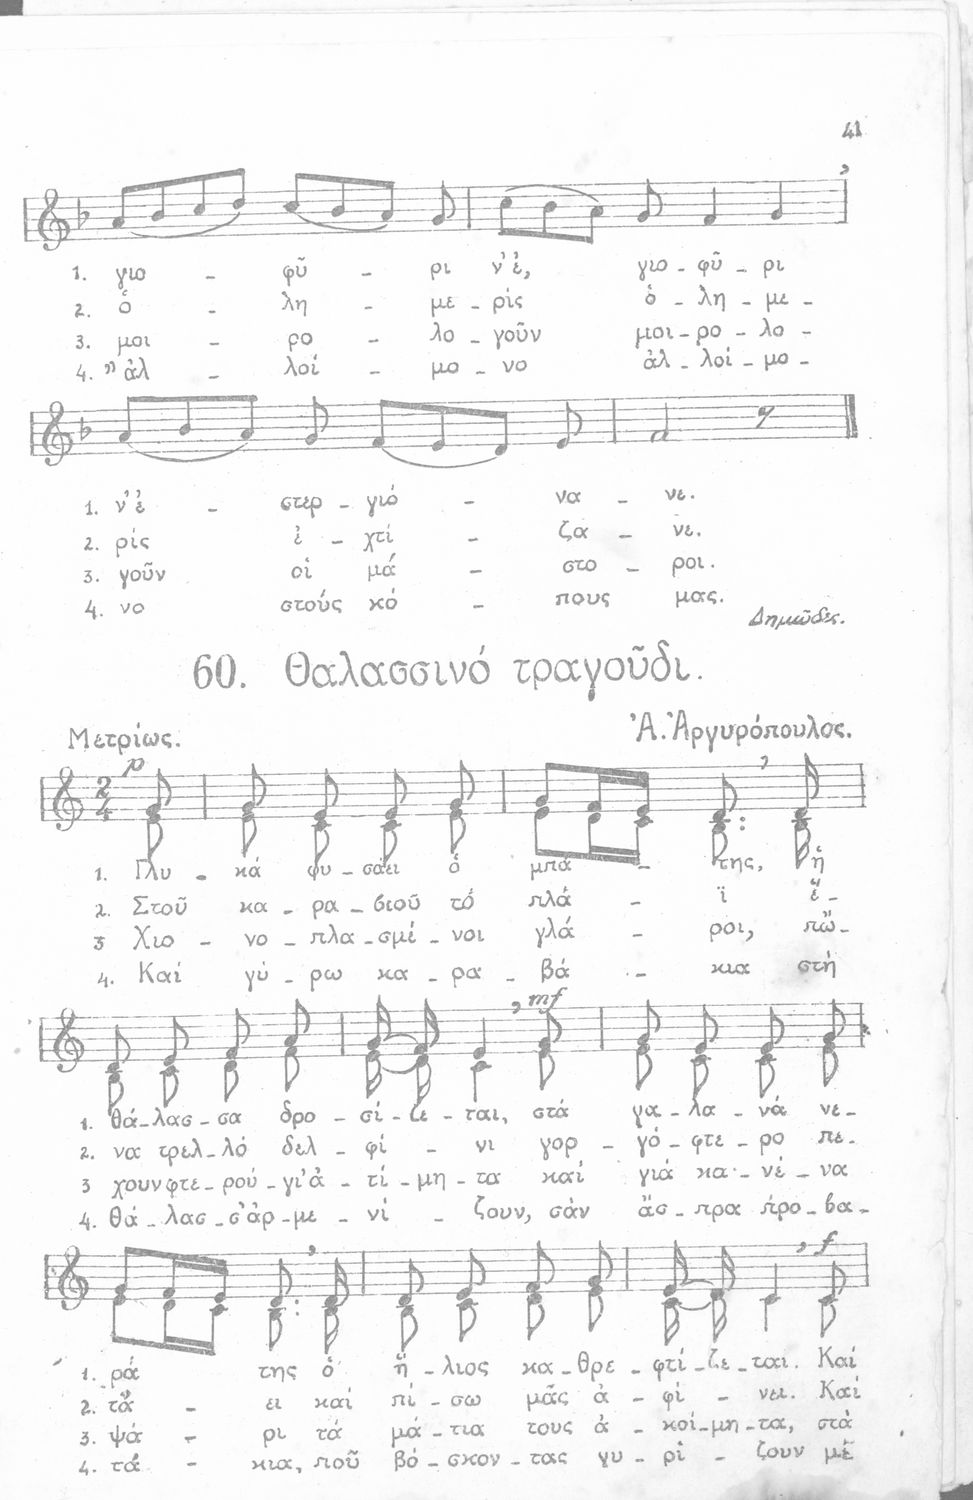 41
1. γιο - φῦ - ρι ν’ ἐ, γιο - φῦ - ρι
2. ὁ - λη - με - ρίς ὁ - λη - με -
3. μοι - ρο - λο - γοῦν μοι - ρο - λο -
4. "ἀλ - λοί - μο - νο ἀλ - λοί - μο -
1. ν’ ἐ - στερ - γιό - να - νε.
2. ρίς ἐ - χτί - ζα - νε.
3. γοῦν οἱ μά - στο - ροι.
4. νο στούς κό - πους μας.
Δημῶδες.
60. Θαλασσινό τραγοῦδι.
Μετρίως. Ἀ. Ἀργυρόπουλος.
p
2
4
1. Γλυ - κά φυ - σάει ὁ μπά - της, ἡ
2. Στοῦ κα - ρα - βιοῦ τό πλά - ϊ ἕ -
3 Χιο - νο - πλα - σμέ - νοι γλά - ροι, πὤ -
4. Καί γύ - ρω κα - ρα - βά - κια στή
mf
1. θά - λασ - σα δρο - σί - ζε - ται, στά γα - λα - νά νε -
2. να τρελ - λό δελ - φί - νι γορ - γό - φτε - ρο πε -
3 χουν φτε - ρού - γι’ ἀ - τί - μη - τα καί γιά κα - νέ - να
4. θά - λασ - σ’ ἀρ - με - νί - ζουν, σάν ἄσ - πρα πρό - βα -
f
1. ρά της ὁ ἥ - λιος κα - θρε - φτί - ζε - ται. Καί
2. τά - ει καί πί - σω μᾶς ἀ - φί - νει. Καί
3. ψά - ρι τά μά - τια τους ἀ - κοί - μη - τα, στά
4. τά - κια, ποῦ βό - σκον - τας γυ - ρί - ζουν μέ